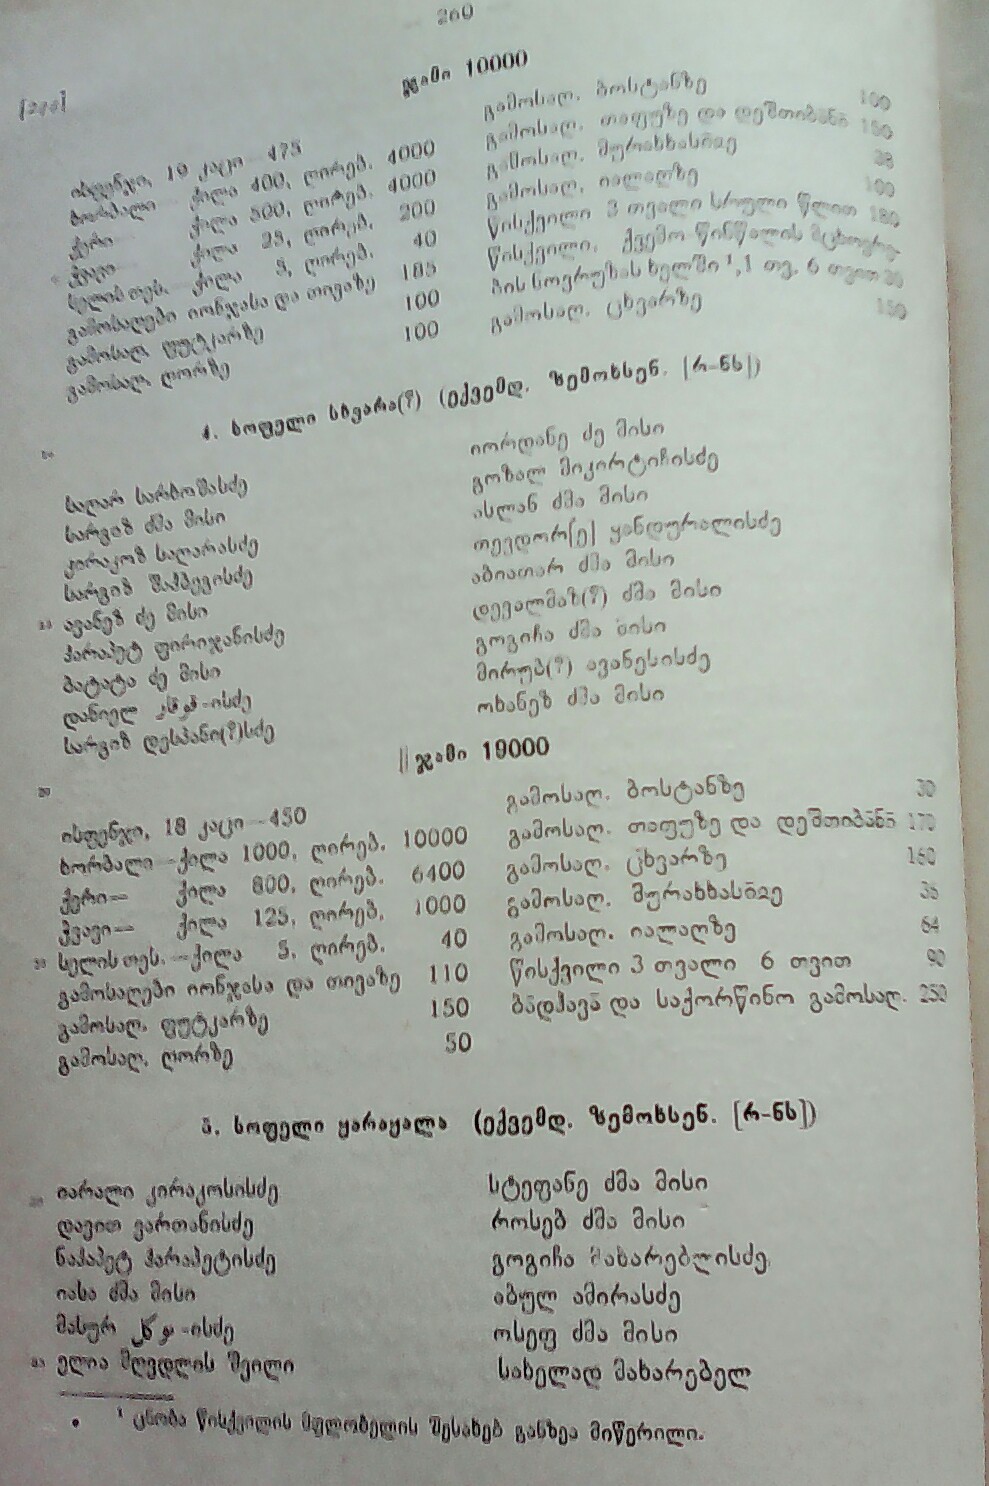 260
ჯამი 10000
ისფენჯი, 19 კაცი 475
ხორბალი ქილა 400, ღირებ. 4000
ქერი ქილა 500, ღირებ. 4000
ჭვავი ქილა 25, ღირებ. 200
სელის თეს. ქილა 5, ღირებ. 40
გამოსაღები იონჯასა და თივაზე 185
გამოსაღ. ფუტკარზე 100
გამოსაღ. ღორზე 100
გამოსაღ. ბოსტანზე 100
გამოსაღ. თაფუზე და დეშთიბანა̄ 150
გამოსაღ. მურახხასი̄ჲე
გამოსაღ. იალაღზე 100
წისქვილი 3 თვალი სრული წლით 180
წისქვილი, ქვემო წინწალის მცხოვრე-
ბის ხელში ¹, 1 თვ. 6 თვით
გამოსაღ. ცხვარზე 150
4. სოფელი სხვარა(?) (ექვემდ. ზემოხსენ. [რ-ნს])
საღარ სარხოშასძე
სარგიზ ძმა მისი
კირაკოზ საღარასძე
სარგიზ შაჰბეგისძე
ავანეზ ძე მისი
კარაპეტ ფირიჯანისძე
ბატატა ძე მისი
დანიელ -ისძე
სარგიზ დესპანი(?)სძე
იორდანე ძე მისი
გოზალ მიკირტიჩისძე
ასლან ძმა მისი
თევდორ[ე] ყანდურალისძე
აბიათარ ძმა მისი
დევალმაზ(?) ძმა მისი
გოგიჩა ძმა მისი
მირუბ(?) ავანესისძე
ოხანეზ ძმა მისი
|| ჯამი 19000
ისფენჯი, 18 კაცი—450
ხორბალი—ქილა 1000, ღირებ. 10000
ქერი— ქილა 800, ღირებ. 6400
ჭვავი— ქილა 125, ღირებ. 1000
სელის თეს.—ქილა 5, ღირებ. 40
გამოსაღები იონჯასა და თივაზე 110
გამოსაღ. ფუტკარზე 150
გამოსაღ. ღორზე 50
გამოსაღ. ბოსტანზე 30
გამოსაღ. თაფუზე და დეშთიბანა̄ 170
გამოსაღ. ცხვარზე 160
გამოსაღ. მურახხასი̄ჲე
გამოსაღ. იალაღზე 64
წისქვილი 3 თვალი 6 თვით 90
ბა̄დჰავა̄ და საქორწინო გამოსაღ. 250
5. სოფელი ყარაყალა (ექვემდ. ზემოხსენ. [რ-ნს])
იარალი კირაკოსისძე
დავით ვართანისძე
ნაჰაპეტ კარაპეტისძე
იასა ძმა მისი
მასურ -ისძე
ელია მღვდლის შვილი
სტეფანე ძმა მისი
როსებ ძმა მისი
გოგიჩა მახარებლისძე
აბულ ამირასძე
ოსეფ ძმა მისი
სახელად მახარებელ
¹ ცნობა წისქვილის მფლობელის შესახებ განზეა მიწერილი.